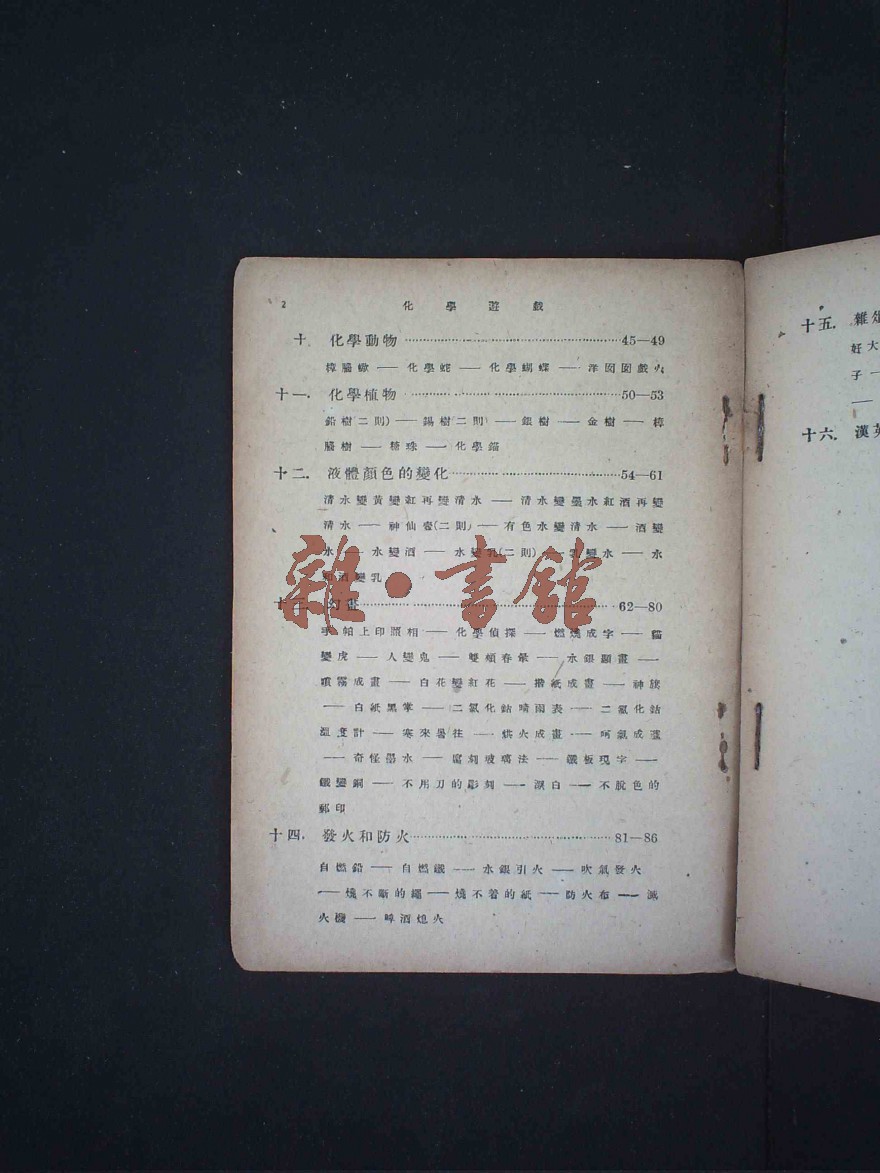 2 化學遊戲
十. 化學動物 45—49
樟腦蠍 — 化學蛇 — 化學蝴蝶 — 洋囡囡戲火
十一. 化學植物 50—53
鉛樹(二則) — 錫樹(二則) — 銀樹 — 金樹 — 樟
腦樹 — 糖珠 — 化學錨
十二. 液體顏色的變化 54—61
清水變黃變紅再變清水 — 清水變墨水紅酒再變
清水 — 神仙壺(二則) — 有色水變清水 — 酒變
水 — 水變酒 — 水變乳(二則) — 乳變水 — 水
酒變乳
十三. 幻畫 62—80
手帕上印照相 — 化學偵探 — 燃燒成字 — 貓
變虎 — 人變鬼 — 雙頰春暈 — 水銀顯畫 —
噴霧成畫 — 白花變紅花 — 揩紙成畫 — 神旗
— 白紙黑掌 — 二氯化鈷晴雨表 — 二氯化鈷
溫度計 — 寒來暑往 — 烘火成畫 — 呵氣成
— 奇怪墨水 — 腐刻玻璃法 — 鐵板現字 —
鐵變銅 — 不用刀的彫刻 — 漂白 — 不脫色的
郵印
十四. 發火和防火 81—86
自燃鉛 — 自燃鐵 — 水銀引火 — 吹氣發火
— 燒不斷的繩 — 燒不着的紙 — 防火布 — 滅
火機 — 啤酒熄火
雜·書館
十五. 雜俎
好大
子 —
—
十六. 漢英